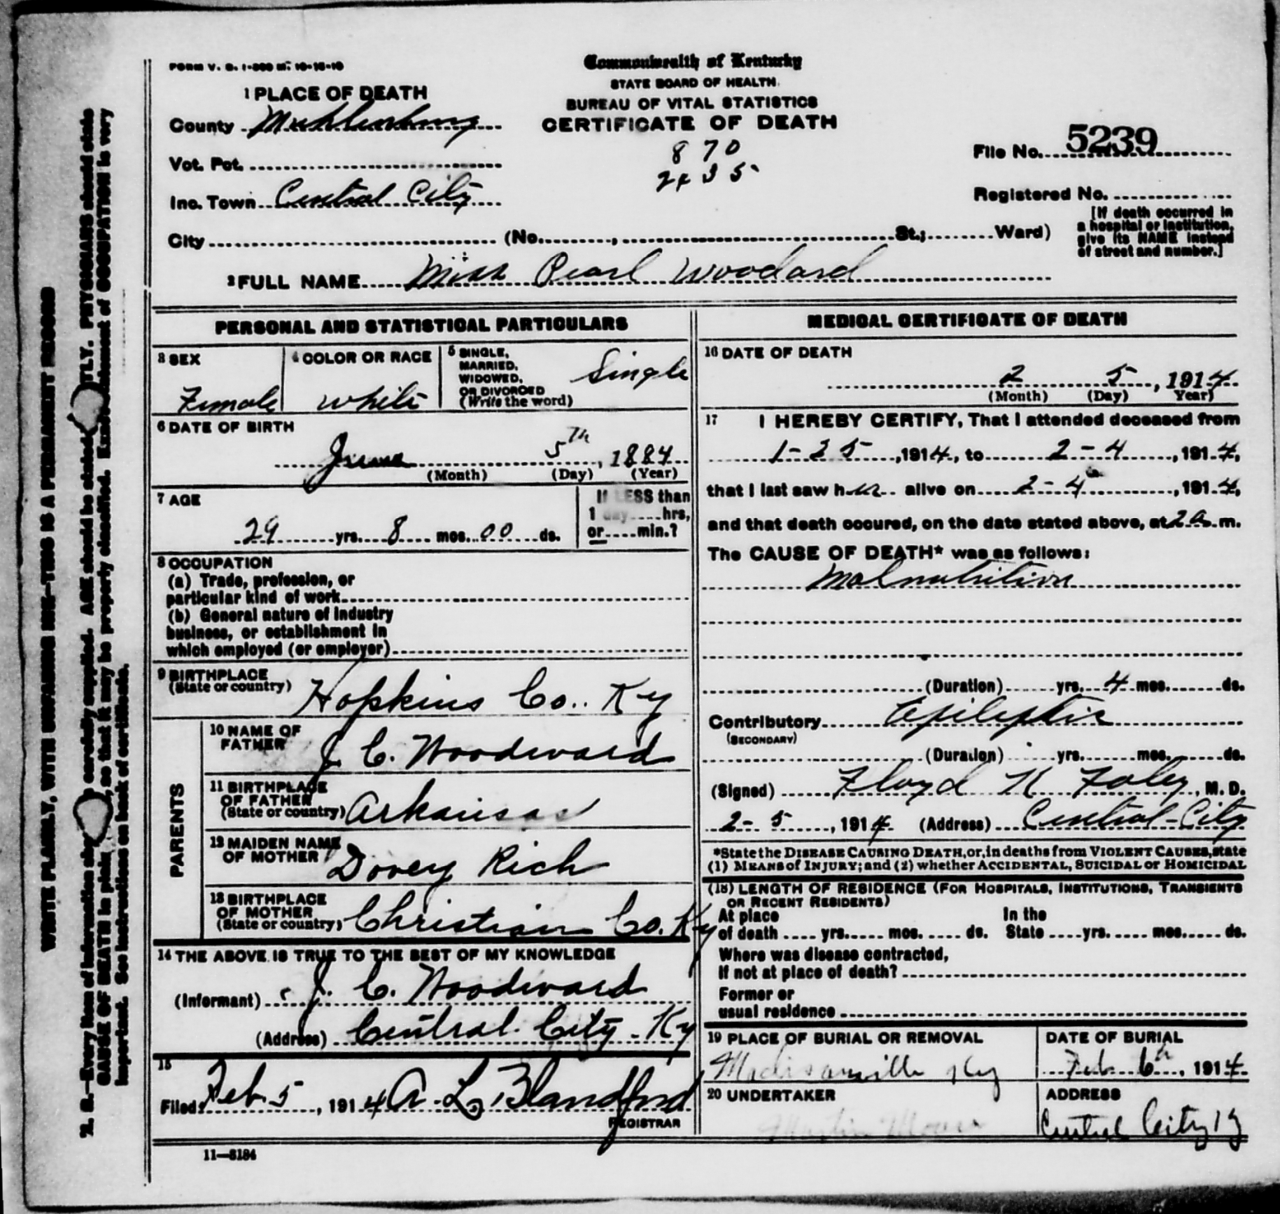 FORM V. S. 1-500 M. 10-18-10
Commonwealth of Kentucky
STATE BOARD OF HEALTH.
BUREAU OF VITAL STATISTICS
CERTIFICATE OF DEATH
1 PLACE OF DEATH
County Muhlenburg
Vot. Pct.
Inc. Town Central City
870
2435
File No. 5239
Registered No.
City (No. , St.; Ward)
[If death occurred in
a hospital or institution,
give its NAME instead
of street and number.]
2 FULL NAME Miss Pearl Woodard
PERSONAL AND STATISTICAL PARTICULARS
3 SEX Female
4 COLOR OR RACE white
5 SINGLE, MARRIED, WIDOWED, OR DIVORCED (Write the word) Single
6 DATE OF BIRTH
June 5th, 1884
(Month) (Day) (Year)
7 AGE
29 yrs. 8 mos. 00 ds.
If LESS than
1 day hrs,
or min.?
8 OCCUPATION
(a) Trade, profession, or
particular kind of work
(b) General nature of industry
business, or establishment in
which employed (or employer)
9 BIRTHPLACE
(State or country) Hopkins Co. Ky
PARENTS
10 NAME OF
FATHER J. C. Woodward
11 BIRTHPLACE
OF FATHER
(State or country) Arkansas
12 MAIDEN NAME
OF MOTHER Dovey Rich
13 BIRTHPLACE
OF MOTHER
(State or country) Christian Co. Ky
14 THE ABOVE IS TRUE TO THE BEST OF MY KNOWLEDGE
(Informant) J. C. Woodward
(Address) Central City - Ky
15
Filed: Feb. 5, 1914 A. L. Blandford
REGISTRAR
11—8184
MEDICAL CERTIFICATE OF DEATH
16 DATE OF DEATH
2 5, 1914
(Month) (Day) Year)
17 I HEREBY CERTIFY, That I attended deceased from
1-25, 1914, to 2-4, 1914,
that I last saw her alive on 2-4, 1914,
and that death occured, on the date stated above, at 2 a. m.
The CAUSE OF DEATH* was as follows:
Malnutrition
(Duration) yrs. 4 mos. ds.
Contributory Epileptic
(SECONDARY)
(Duration) yrs. mos. ds.
(Signed) Floyd N Foley, M. D.
2-5, 1914 (Address) Central-City
*State the DISEASE CAUSING DEATH, or, in deaths from VIOLENT CAUSES, state
(1) MEANS of INJURY; and (2) whether ACCIDENTAL, SUICIDAL or HOMICIDAL
(18) LENGTH OF RESIDENCE (FOR HOSPITALS, INSTITUTIONS, TRANSIENTS
OR RECENT RESIDENTS)
At place In the
of death yrs. mos. ds. State yrs. mos. ds.
Where was disease contracted,
if not at place of death?
Former or
usual residence
19 PLACE OF BURIAL OR REMOVAL
Madisonville Ky
DATE OF BURIAL
Feb 6th, 1914
20 UNDERTAKER
Martin Moore
ADDRESS
Central City Ky
WRITE PLAINLY, WITH UNFADING INK—THIS IS A PERMANENT RECORD
N. B.—Every item of information carefully supplied. AGE should be stated EXACTLY. PHYSICIANS should state
CAUSE OF DEATH in plain so that it may be properly classified. Exact statement of OCCUPATION is very
important. See instructions on back of certificate.